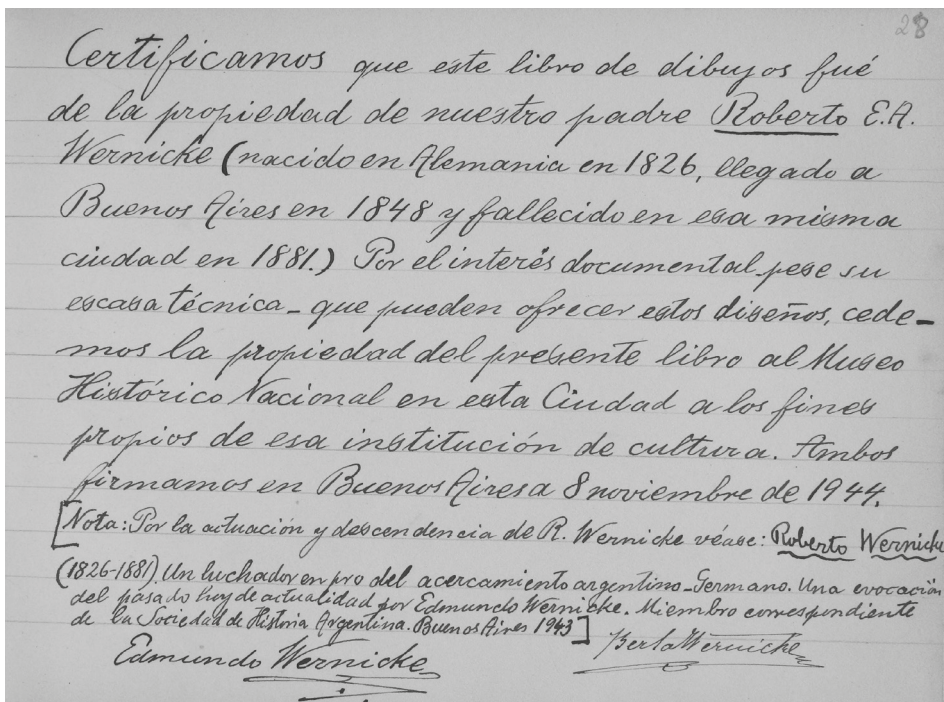 28
Certificamos que este libro de dibujos fué
de la propiedad de nuestro padre Roberto E.A.
Wernicke (nacido en Alemania en 1826, llegado a
Buenos Aires en 1848 y fallecido en esa misma
ciudad en 1881.) Por el interés documental_pese su
escasa técnica_ que pueden ofrecer estos diseños, cede-
mos la propiedad del presente libro al Museo
Histórico Nacional en esta Ciudad a los fines
propios de esa institución de cultura. Ambos
firmamos en Buenos Aires a 8 noviembre de 1944.
[Nota: Por la actuación y descendencia de R. Wernicke véase: Roberto Wernicke
(1826-1881) Un luchador en pro del acercamiento argentino-Germano. Una evocación
del pasado hoy de actualidad por Edmundo Wernicke. Miembro correspondiente
de la Sociedad de Historia Argentina. Buenos Aires 1943]
Edmundo Wernicke Berta Wernicke